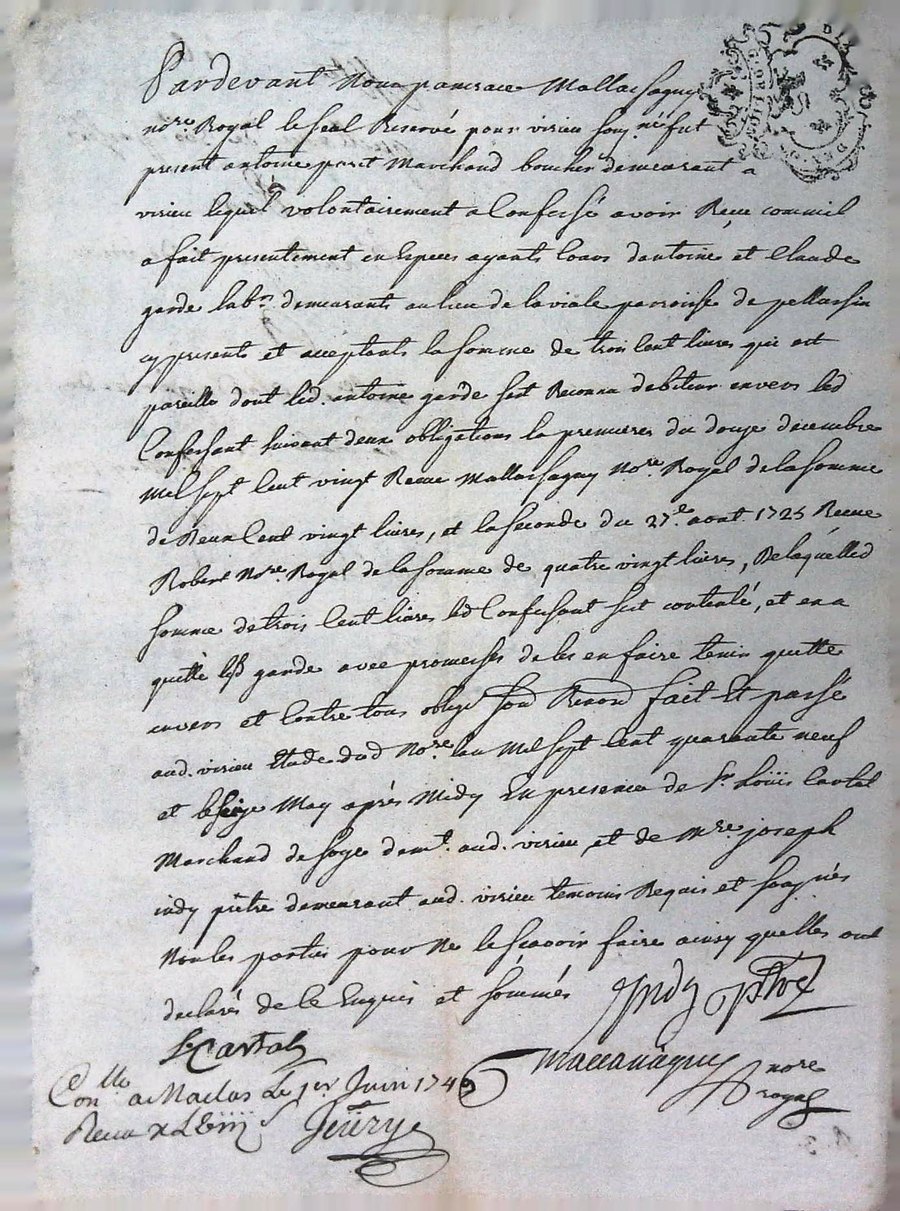 Pardevant Nous pancrace Mallassagny
no.re Royal le Seal Reservé pour virieu Soug.né fut
present antoine paret Marchand boucher demeurant a
virieu lequel volontairement a Confessé avoir Reçu comme il
a fait presentement en Especes ayants Cours d'antoine et Claude
garde lab.rs demeurants au lieu de la viale parroisse de pellassin
cy presents et acceptants la Somme de trois Cent livres qui est
pareille dont led. antoine garde sest Reconnu debiteur envers led
Confessant suivant deux obligations la premieres du douze decembre
Mil Sept Cent vingt Receue Mallassagny No.re Royal de la Somme
de Deux Cent vingt livres, et la Seconde du 27.e aout 1725 Receue
Robert No.re Royal de la Somme de quatre vingt livres, De laquelle d
Somme de trois Cent livres led Confessant sest contenté, et en a
quitté lesd garde avec promesses de les en faire tenir quitte
envers et Contre tous oblige Soud Renond fait Et passé
aud. virieu Etude dud No.re Lan Mil Sept Cent quarante neuf
et le Seize May après Midy En presence de S.r Loüis Cartal
Marchand de Soye dem.t aud. virieu, et de M.re joseph
indy prêtre demeurant aud. virieu temoins Requis et Soug.nés
Non les parties pour Ne le Scavoir faire ainsy quelles ont
declarés de le Enquis et Sommés Jndy ptre
L. Cartal
Mallassagny nore
royal
Con.llé a Maclas Le 1.er Juin 1749
Receu
Fleury